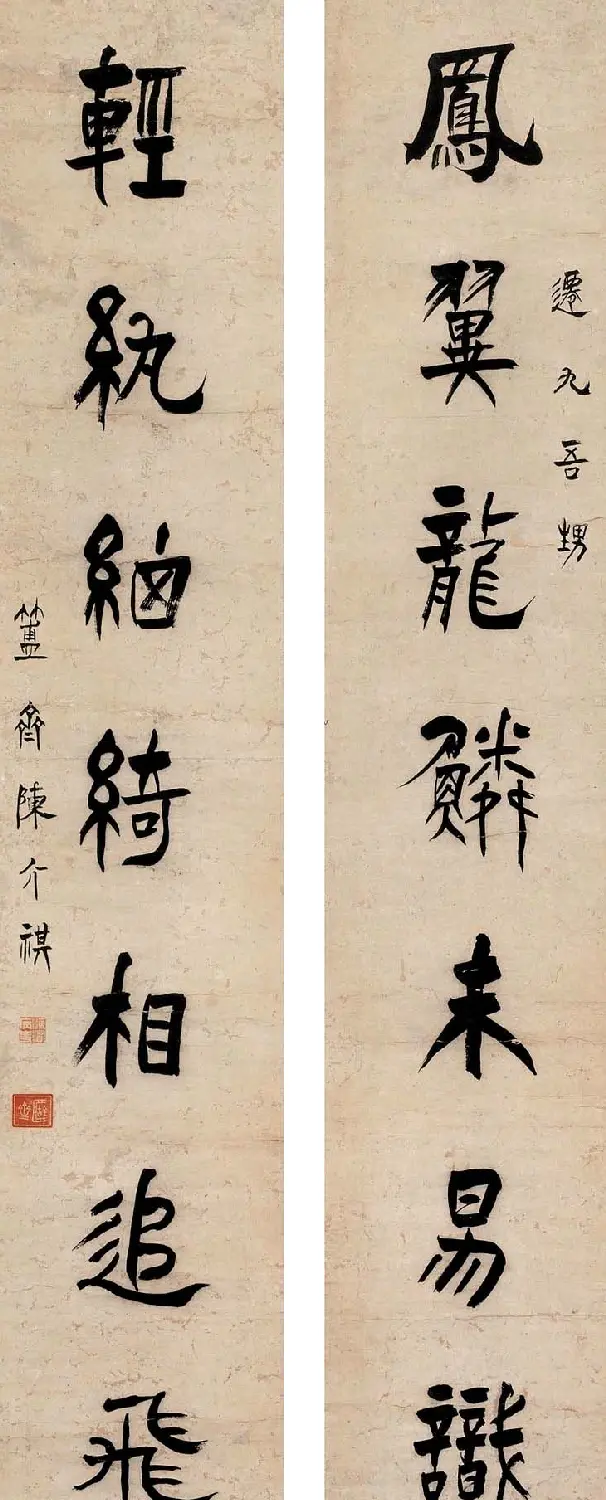 遷九吾甥
鳳翼龍鱗未易識
輕紈細綺相追飛
簠齋陳介祺